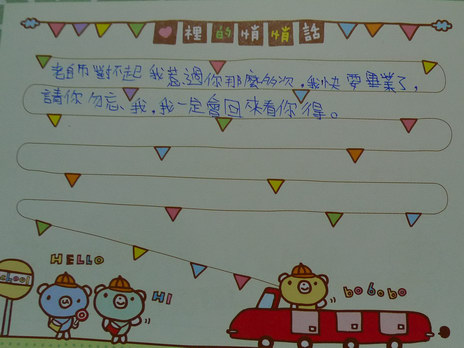 裡的悄悄話
老師對不起我惹過你那麼多次，我快要畢業了，
請你勿忘我，我一定會回來看你得。
HELLO
HI
bobobo